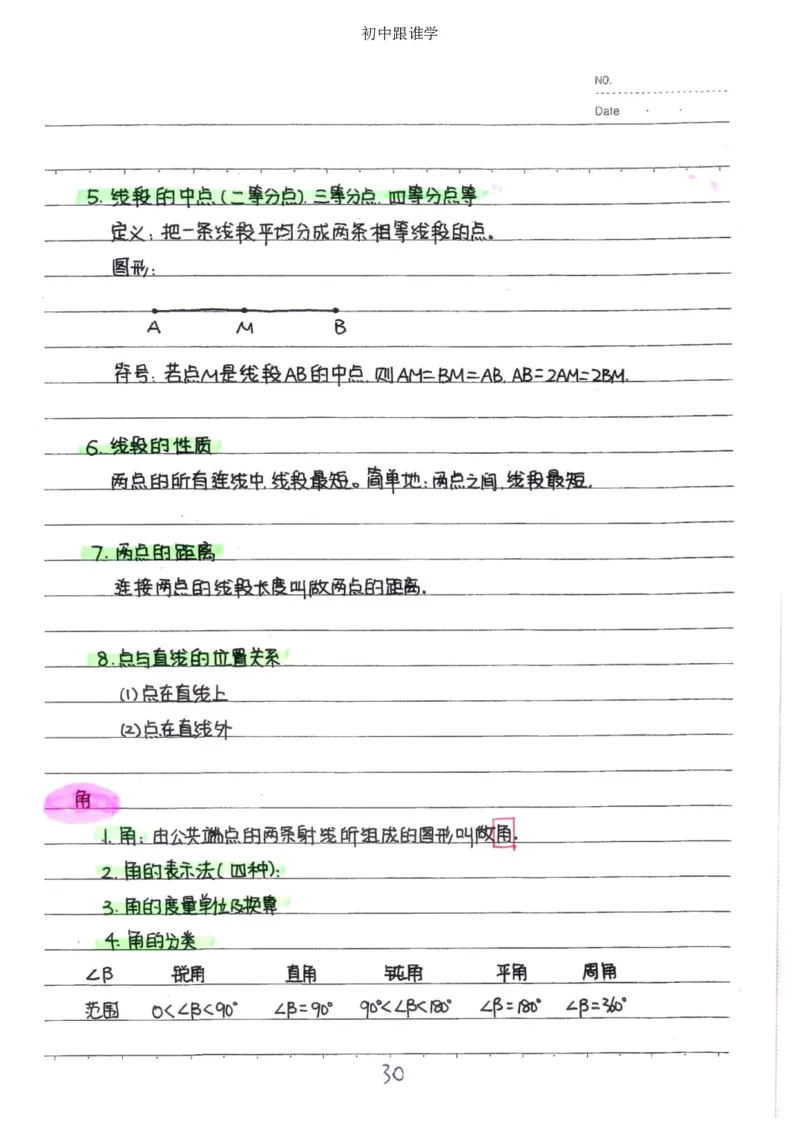 初中跟谁学
NO.
Date
5. 线段的中点(二等分点).三等分点.四等分点等
定义:把一条线段平均分成两条相等线段的点。
图形:
A M B
符号:若点M是线段AB的中点.则AM=BM=AB, AB=2AM=2BM.
6. 线段的性质
两点的所有连线中,线段最短。简单地:两点之间,线段最短.
7. 两点的距离
连接两点的线段长度叫做两点的距离.
8.点与直线的位置关系
(1)点在直线上
(2)点在直线外
角
1. 角:由公共端点的两条射线所组成的图形叫做角.
2. 角的表示法(四种):
3. 角的度量单位及换算
4. 角的分类
∠β 锐角 直角 钝角 平角 周角
范围 0<∠β<90° ∠β=90° 90°<∠β<180° ∠β=180° ∠β=360°
30